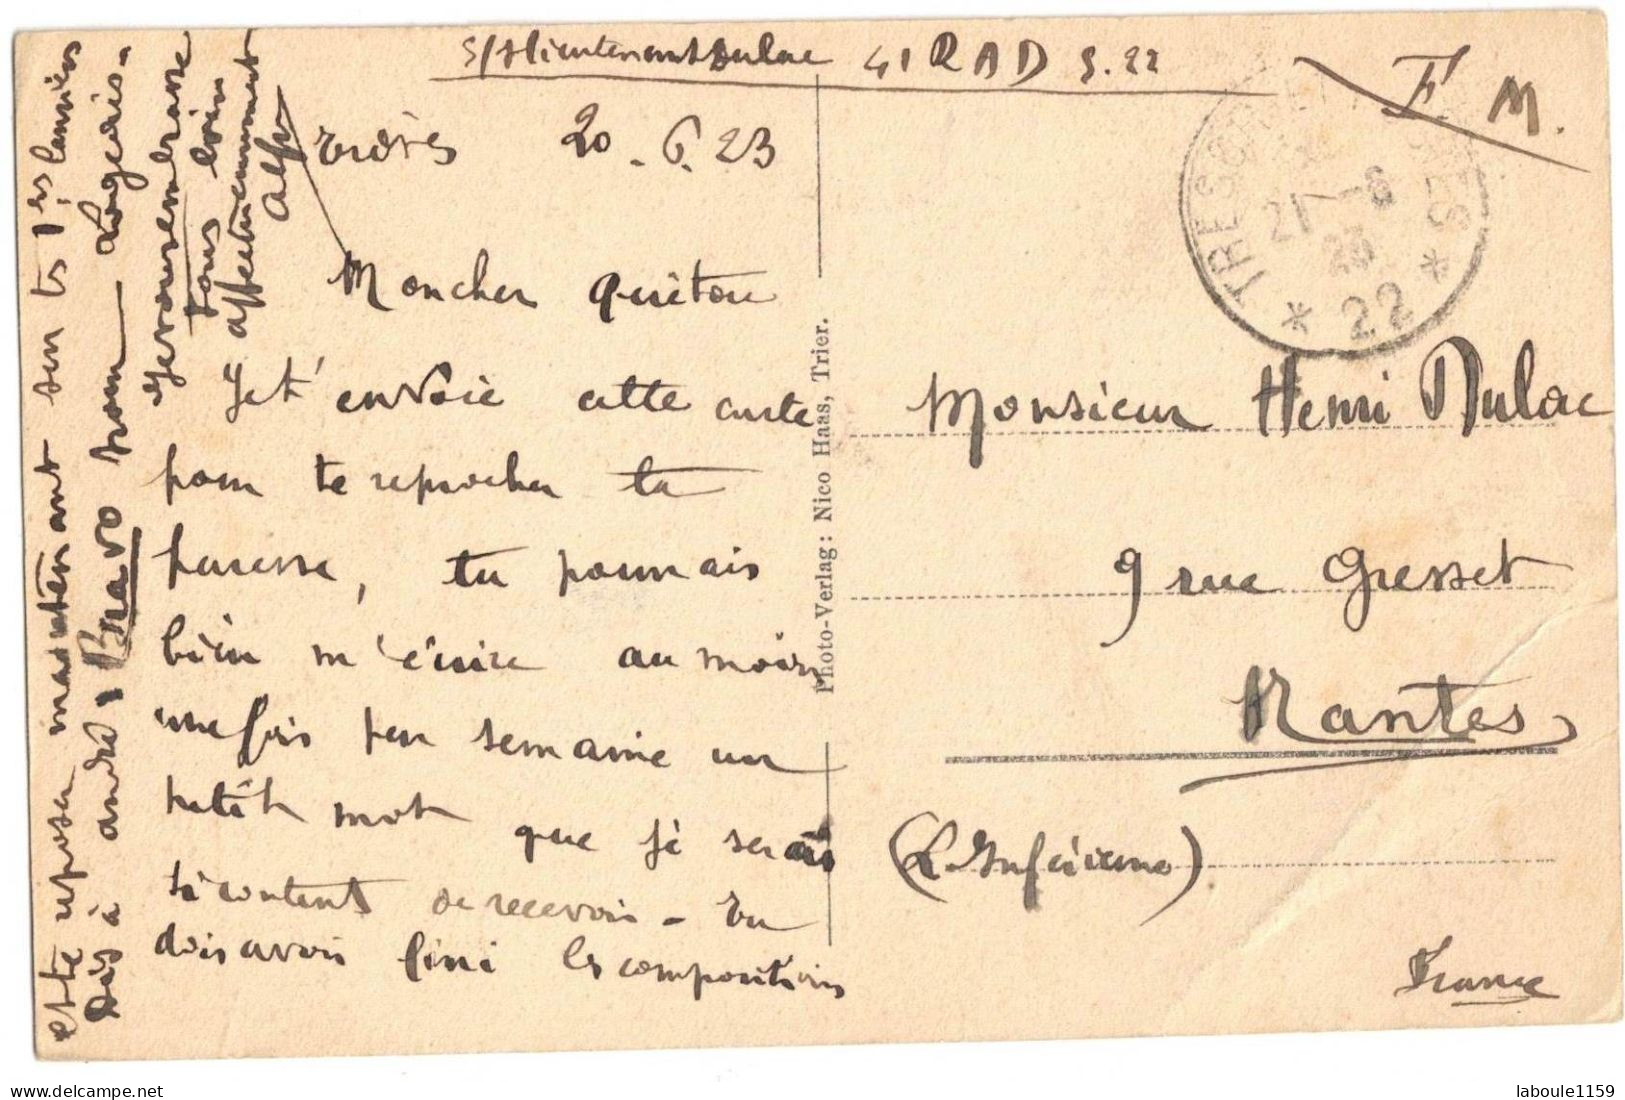 S/Lieutenant Dulac 41 RAD S.22
F M.
Trèves 20.6.23
Mon cher Quiètou
Je t'envoie cette carte
pour te reprocher ta
paresse, tu pourrais
bien m'écrire au moins
une fois par semaine un
petit mot que je serais
si content de recevoir - Tu
dois avoir fini les compositions
et te reposer maintenant sur tes 1ers lauriers
Dis à andré, Bravo pour
Je vous embrasse
tous bien
affectueusement
Photo-Verlag: Nico Haas, Trier.
TRESOR ET POSTES
21 - 6
23
* 22 *
Monsieur Henri Dulac
9 rue Gresset
Nantes
(L. Inférieure)
France
laboule1159